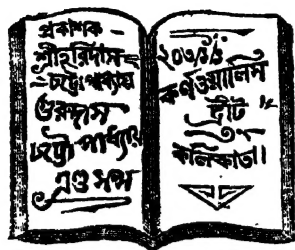 প্রকাশক-
শ্রীহরিদাস
চট্টোপাধ্যায়
গুরুদাস
চট্টোপাধ্যায়
এণ্ড সন্স
২০৩।১।১
কর্ণওয়ালিস
ষ্ট্রীট
কলিকাতা।